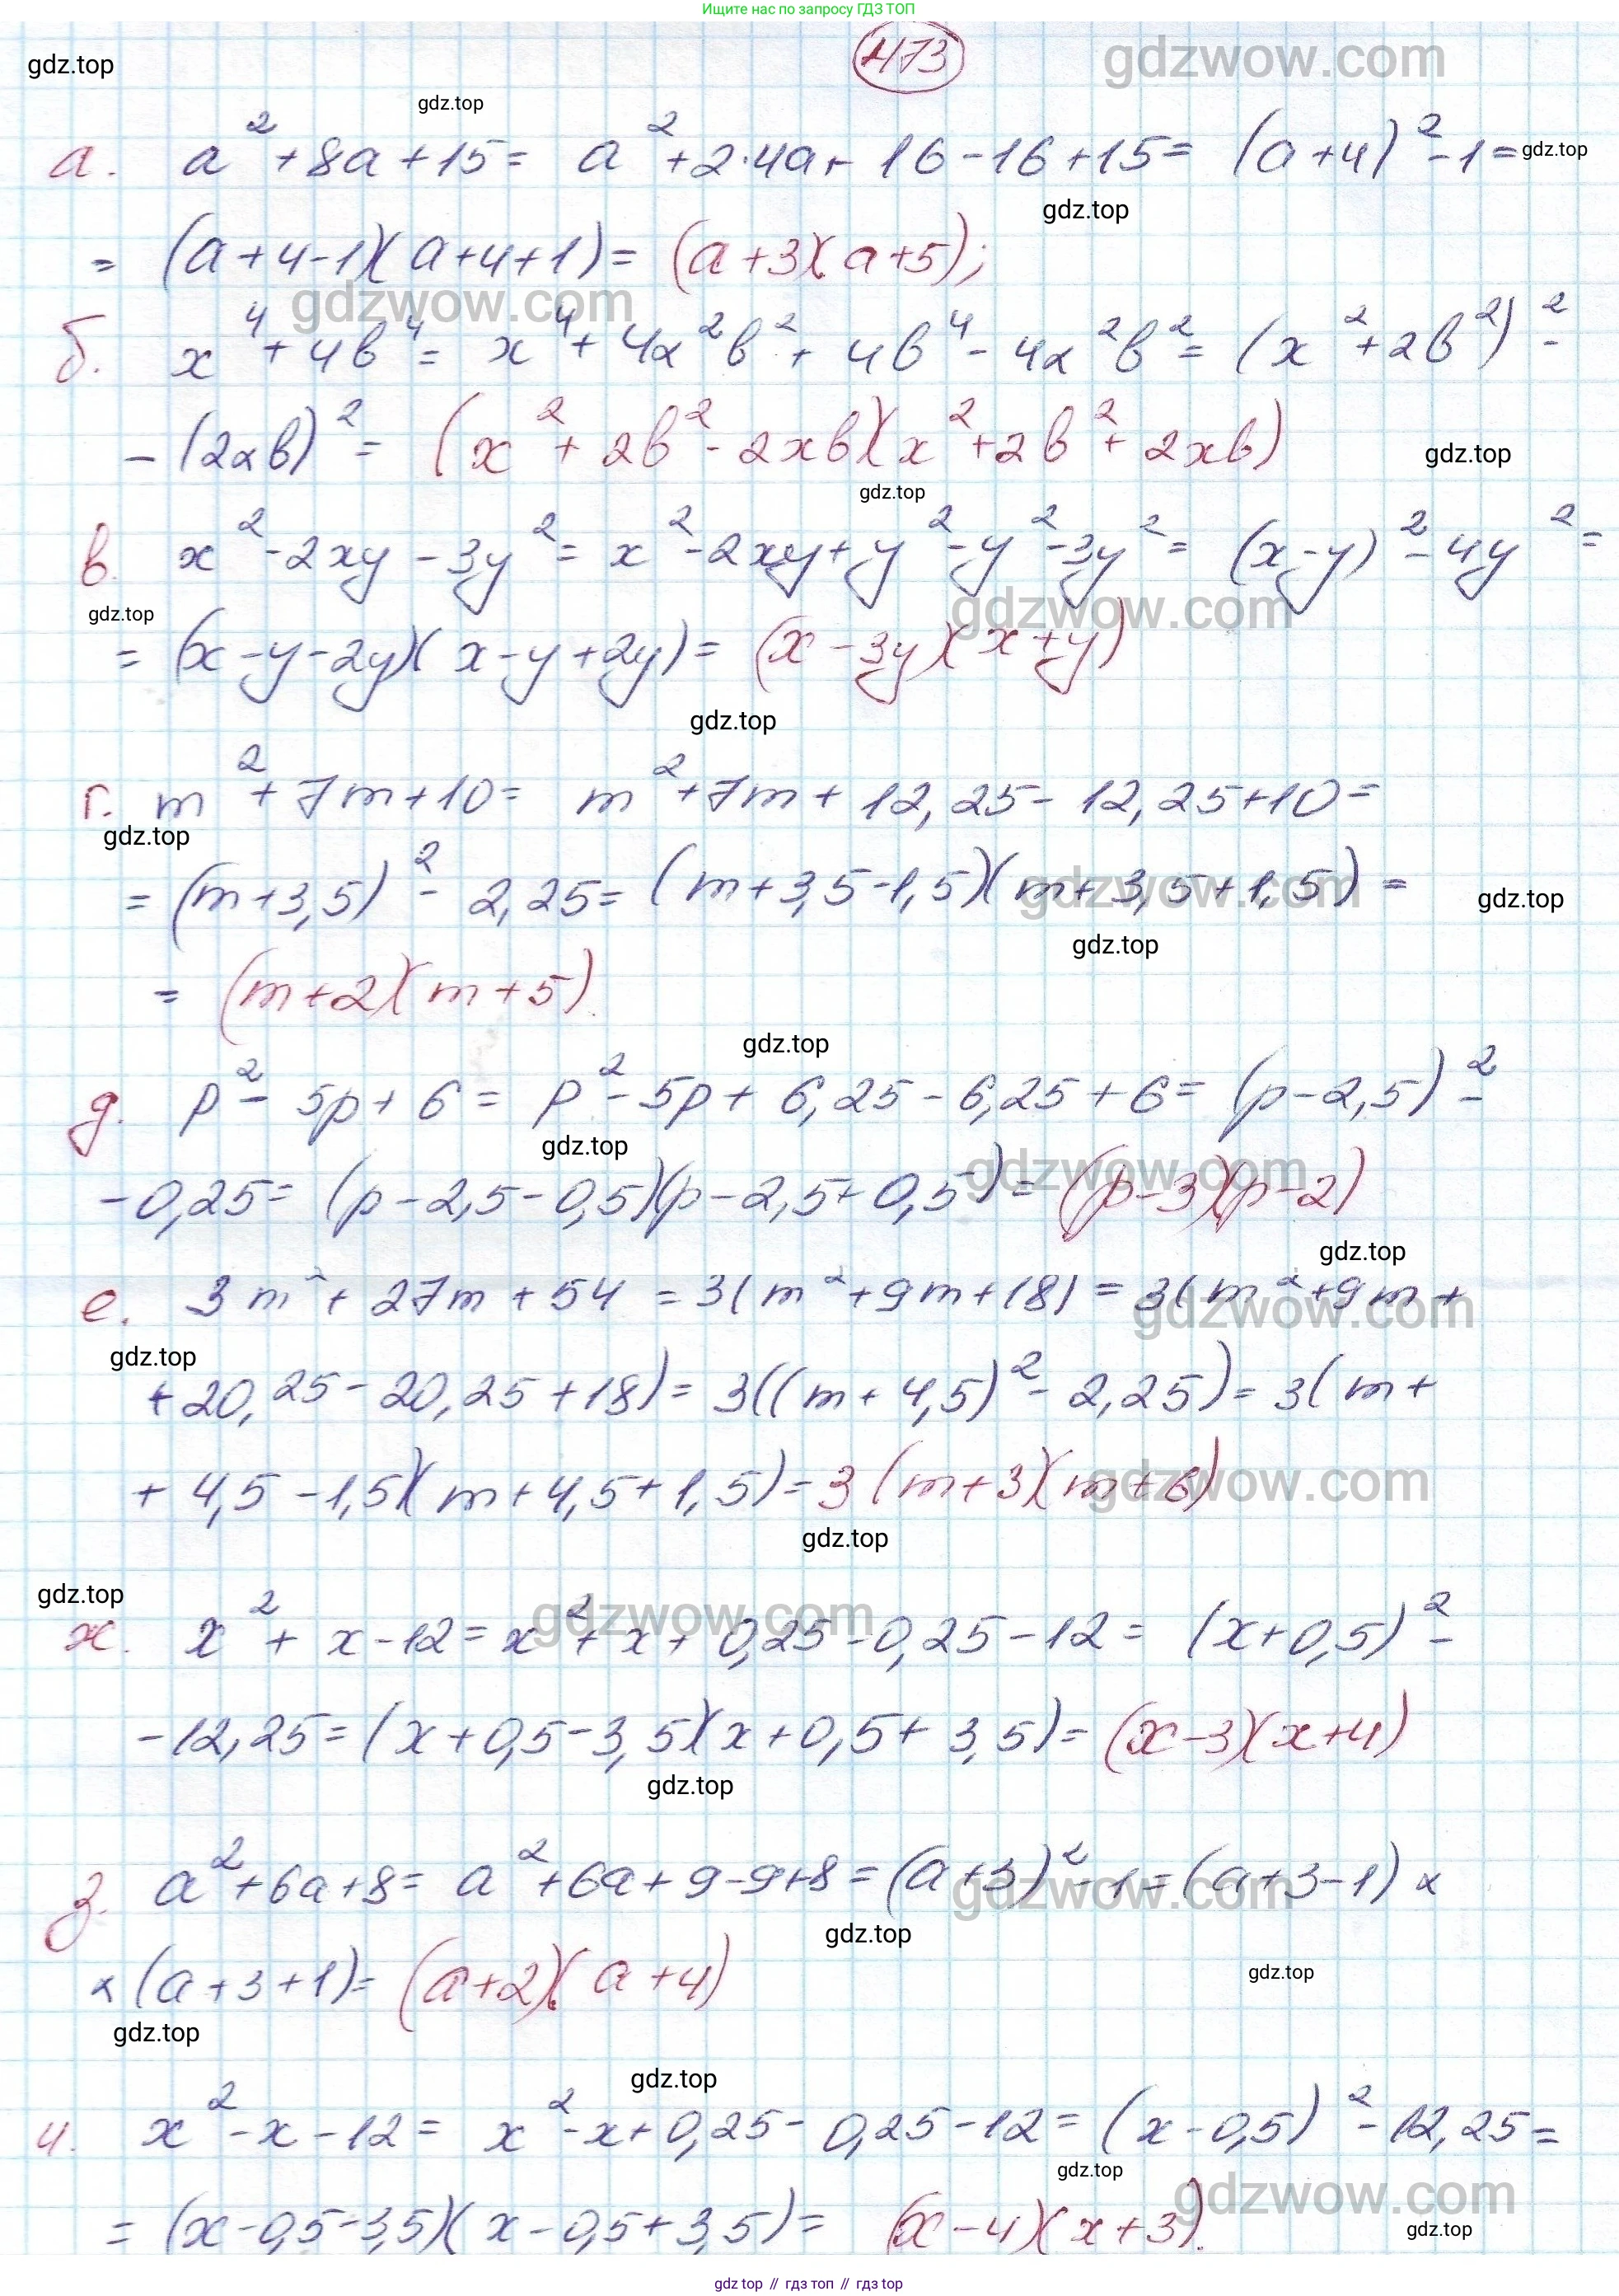 Ищите нас по запросу ГДЗ ТОП
473
gdzwow.com
gdz.top
gdz.top
а. a² + 8a + 15 = a² + 2·4a + 16 - 16 + 15 = (a+4)² - 1 = gdz.top
gdz.top
= (a+4-1)(a+4+1) = (a+3)(a+5);
gdzwow.com
б. x⁴ + 4b⁴ = x⁴ + 4x²b² + 4b⁴ - 4x²b² = (x² + 2b²)² -
- (2xb)² = (x² + 2b² - 2xb)(x² + 2b² + 2xb)
gdz.top
gdz.top
в. x² - 2xy - 3y² = x² - 2xy + y² - y² - 3y² = (x-y)² - 4y² =
gdz.top
gdzwow.com
= (x-y-2y)(x-y+2y) = (x-3y)(x+y)
gdz.top
г. m² + 7m + 10 = m² + 7m + 12,25 - 12,25 + 10 =
gdz.top
= (m+3,5)² - 2,25 = (m+3,5-1,5)(m+3,5+1,5) =
gdzwow.com
gdz.top
gdz.top
= (m+2)(m+5).
gdz.top
д. p² - 5p + 6 = p² - 5p + 6,25 - 6,25 + 6 = (p-2,5)² -
gdz.top
gdzwow.com
- 0,25 = (p-2,5-0,5)(p-2,5+0,5) = (p-3)(p-2)
gdz.top
е. 3m² + 27m + 54 = 3(m² + 9m + 18) = 3(m² + 9m +
gdzwow.com
gdz.top
+ 20,25 - 20,25 + 18) = 3((m+4,5)² - 2,25) = 3(m+
+ 4,5 - 1,5)(m+4,5+1,5) = 3(m+3)(m+6)
gdzwow.com
gdz.top
gdz.top
gdzwow.com
ж. x² + x - 12 = x² + x + 0,25 - 0,25 - 12 = (x+0,5)² -
- 12,25 = (x+0,5-3,5)(x+0,5+3,5) = (x-3)(x+4)
gdz.top
з. a² + 6a + 8 = a² + 6a + 9 - 9 + 8 = (a+3)² - 1 = (a+3-1) ×
gdzwow.com
gdz.top
× (a+3+1) = (a+2)(a+4)
gdz.top
gdz.top
gdz.top
и. x² - x - 12 = x² - x + 0,25 - 0,25 - 12 = (x-0,5)² - 12,25 =
gdz.top
gdzwow.com
= (x-0,5-3,5)(x-0,5+3,5) = (x-4)(x+3).
gdz.top
gdz top // гдз топ // gdz top